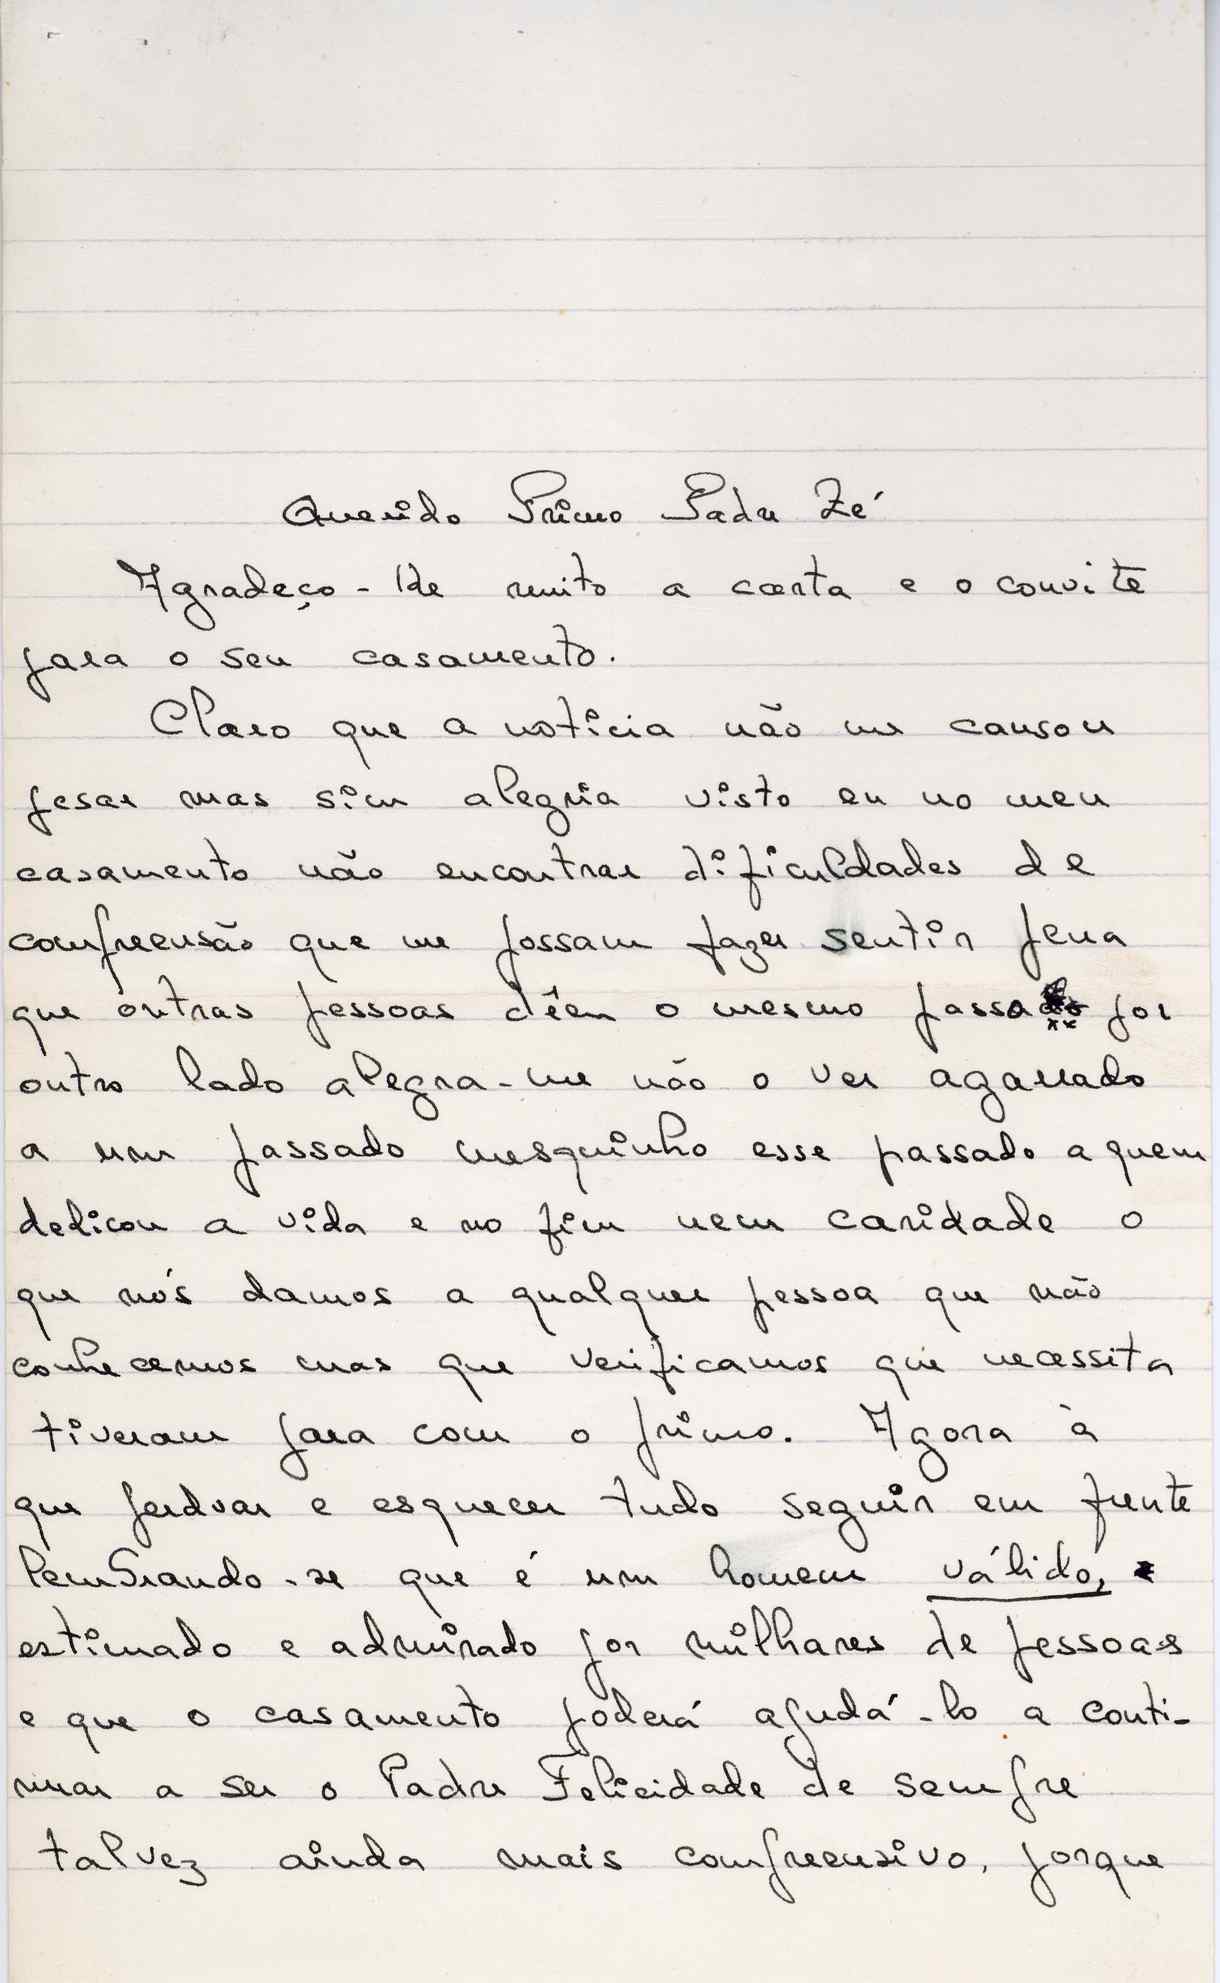 Querido Primo Padre Zé
Agradeço-lhe muito a carta e o convite
para o seu casamento.
Claro que a noticia não me causou
pesar mas sim alegria visto eu no meu
casamento não encontrar dificuldades de
compreensão que me possam fazer sentir pena
que outras pessoas dêem o mesmo passo por
outro lado alegra-me não o ver agarrado
a um passado mesquinho esse passado a quem
dedicou a vida e no fim nem caridade o
que nós damos a qualquer pessoa que não
conhecemos mas que verificamos que necessita
tiveram para com o primo. Agora à
que perdoar e esquecer tudo seguir em frente
lembrando-se que é um homem válido,
estimado e admirado por milhares de pessoas
e que o casamento poderá ajudá-lo a conti-
nuar a ser o Padre Felicidade de sempre
talvez ainda mais compreensivo, porque